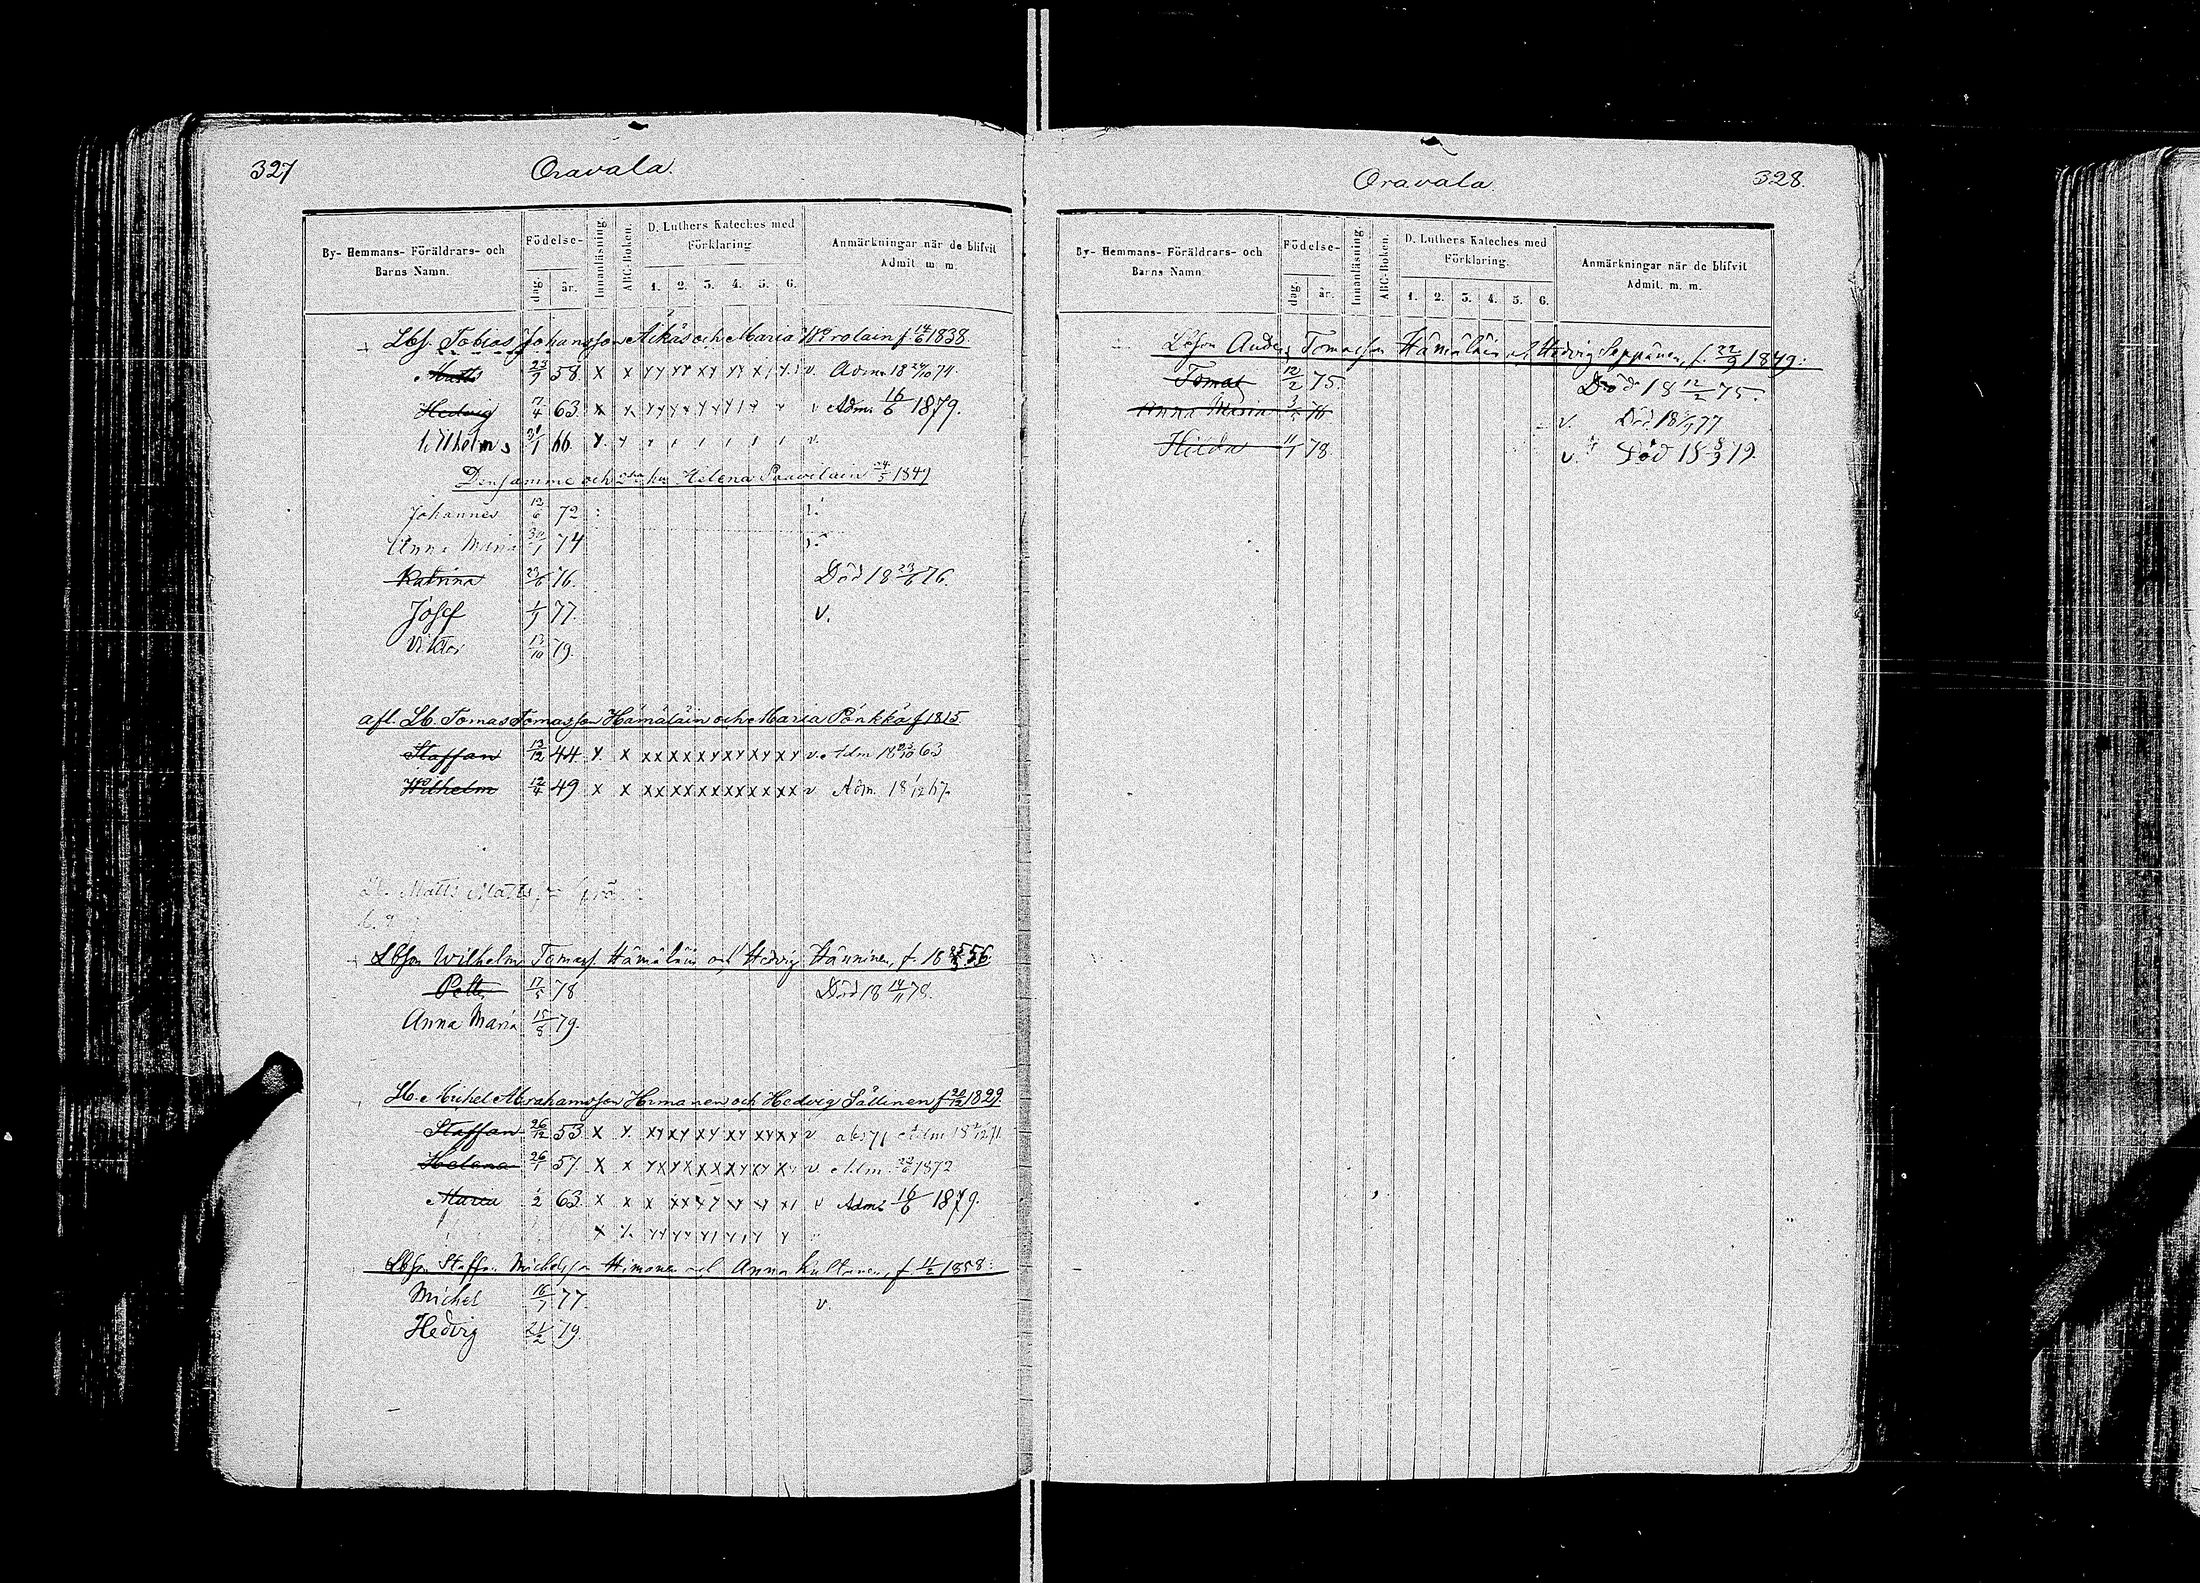 327
Oravala.
By- Hemmans- Föräldrars- och Barns Namn.
Födelse-
dag
år.
Innanläsning.
ABC-Boken.
D. Luthers Kateches med Förklaring.
1. 2. 3. 4. 5. 6.
Anmärkningar när de blifvit Admit. m. m.
Lbs. Tobias Johansson Äikäs och Maria f. 14/6 1838.
Matts 23/9 58. x x v.
Hedvig 7/4 63. x x v Adm. 16/6 1879.
Wilhelm 31/1 66. v.
Densamme och 2dra hu Helena Paavilain 24/5 1849
Johannes 12/6 72
Anna Maria 30/1 74
Katrina 23/6 76. Död 18 23/6 76.
Josef 77. v.
Viktor 13/10 79.
afl. Lb. Tomas Tomasson Hämäläin och Maria Pönkkä f 1815
Staffan 13/12 44 x x xx xx xx xx xx xx v. Adm 18 63
Wilhelm 12/4 49 x x xx xx xx xx xx xx v Adm. 18 1/12 67.
Matts Matts
Lbson Wilhelm Tomass. Hämäläin och Hedvig Hänninen, f. 18 56.
Petter 17/5 78 Död 18 14/11 78.
Anna Maria 15/8 79.
Lb. Michel Abrahamsson Himanen och Hedvig Sällinen f. 20/12 1829.
Staffan 26/12 53 x x xx xx xx xx xx xx v
Helena 26/1 57. x x xx xx xx xx xx xx v Adm. 1872
Maria 1/2 63. x x v Adm. 16/6 1879.
Lbson Staffan Michelsson Himanen och Anna Kultanen, f. 1858:
Michel 16/7 77 v.
Hedvig 21/2 79.
Oravala
328.
By- Hemmans- Föräldrars- och Barns Namn.
Födelse-
dag
år.
Innanläsning.
ABC-Boken.
D. Luthers Kateches med Förklaring.
1. 2. 3. 4. 5. 6.
Anmärkningar när de blifvit Admit. m. m.
Lbson Anders Tomasson Hämäläin o. Hedvig Seppänen, f. 22/9 1849:
Tomas 12/2 75. Död 18 12/2 75.
Anna Maria 76 v. Död 18 77
Hilda 11/1 78. v. Död 18 8/9 79.